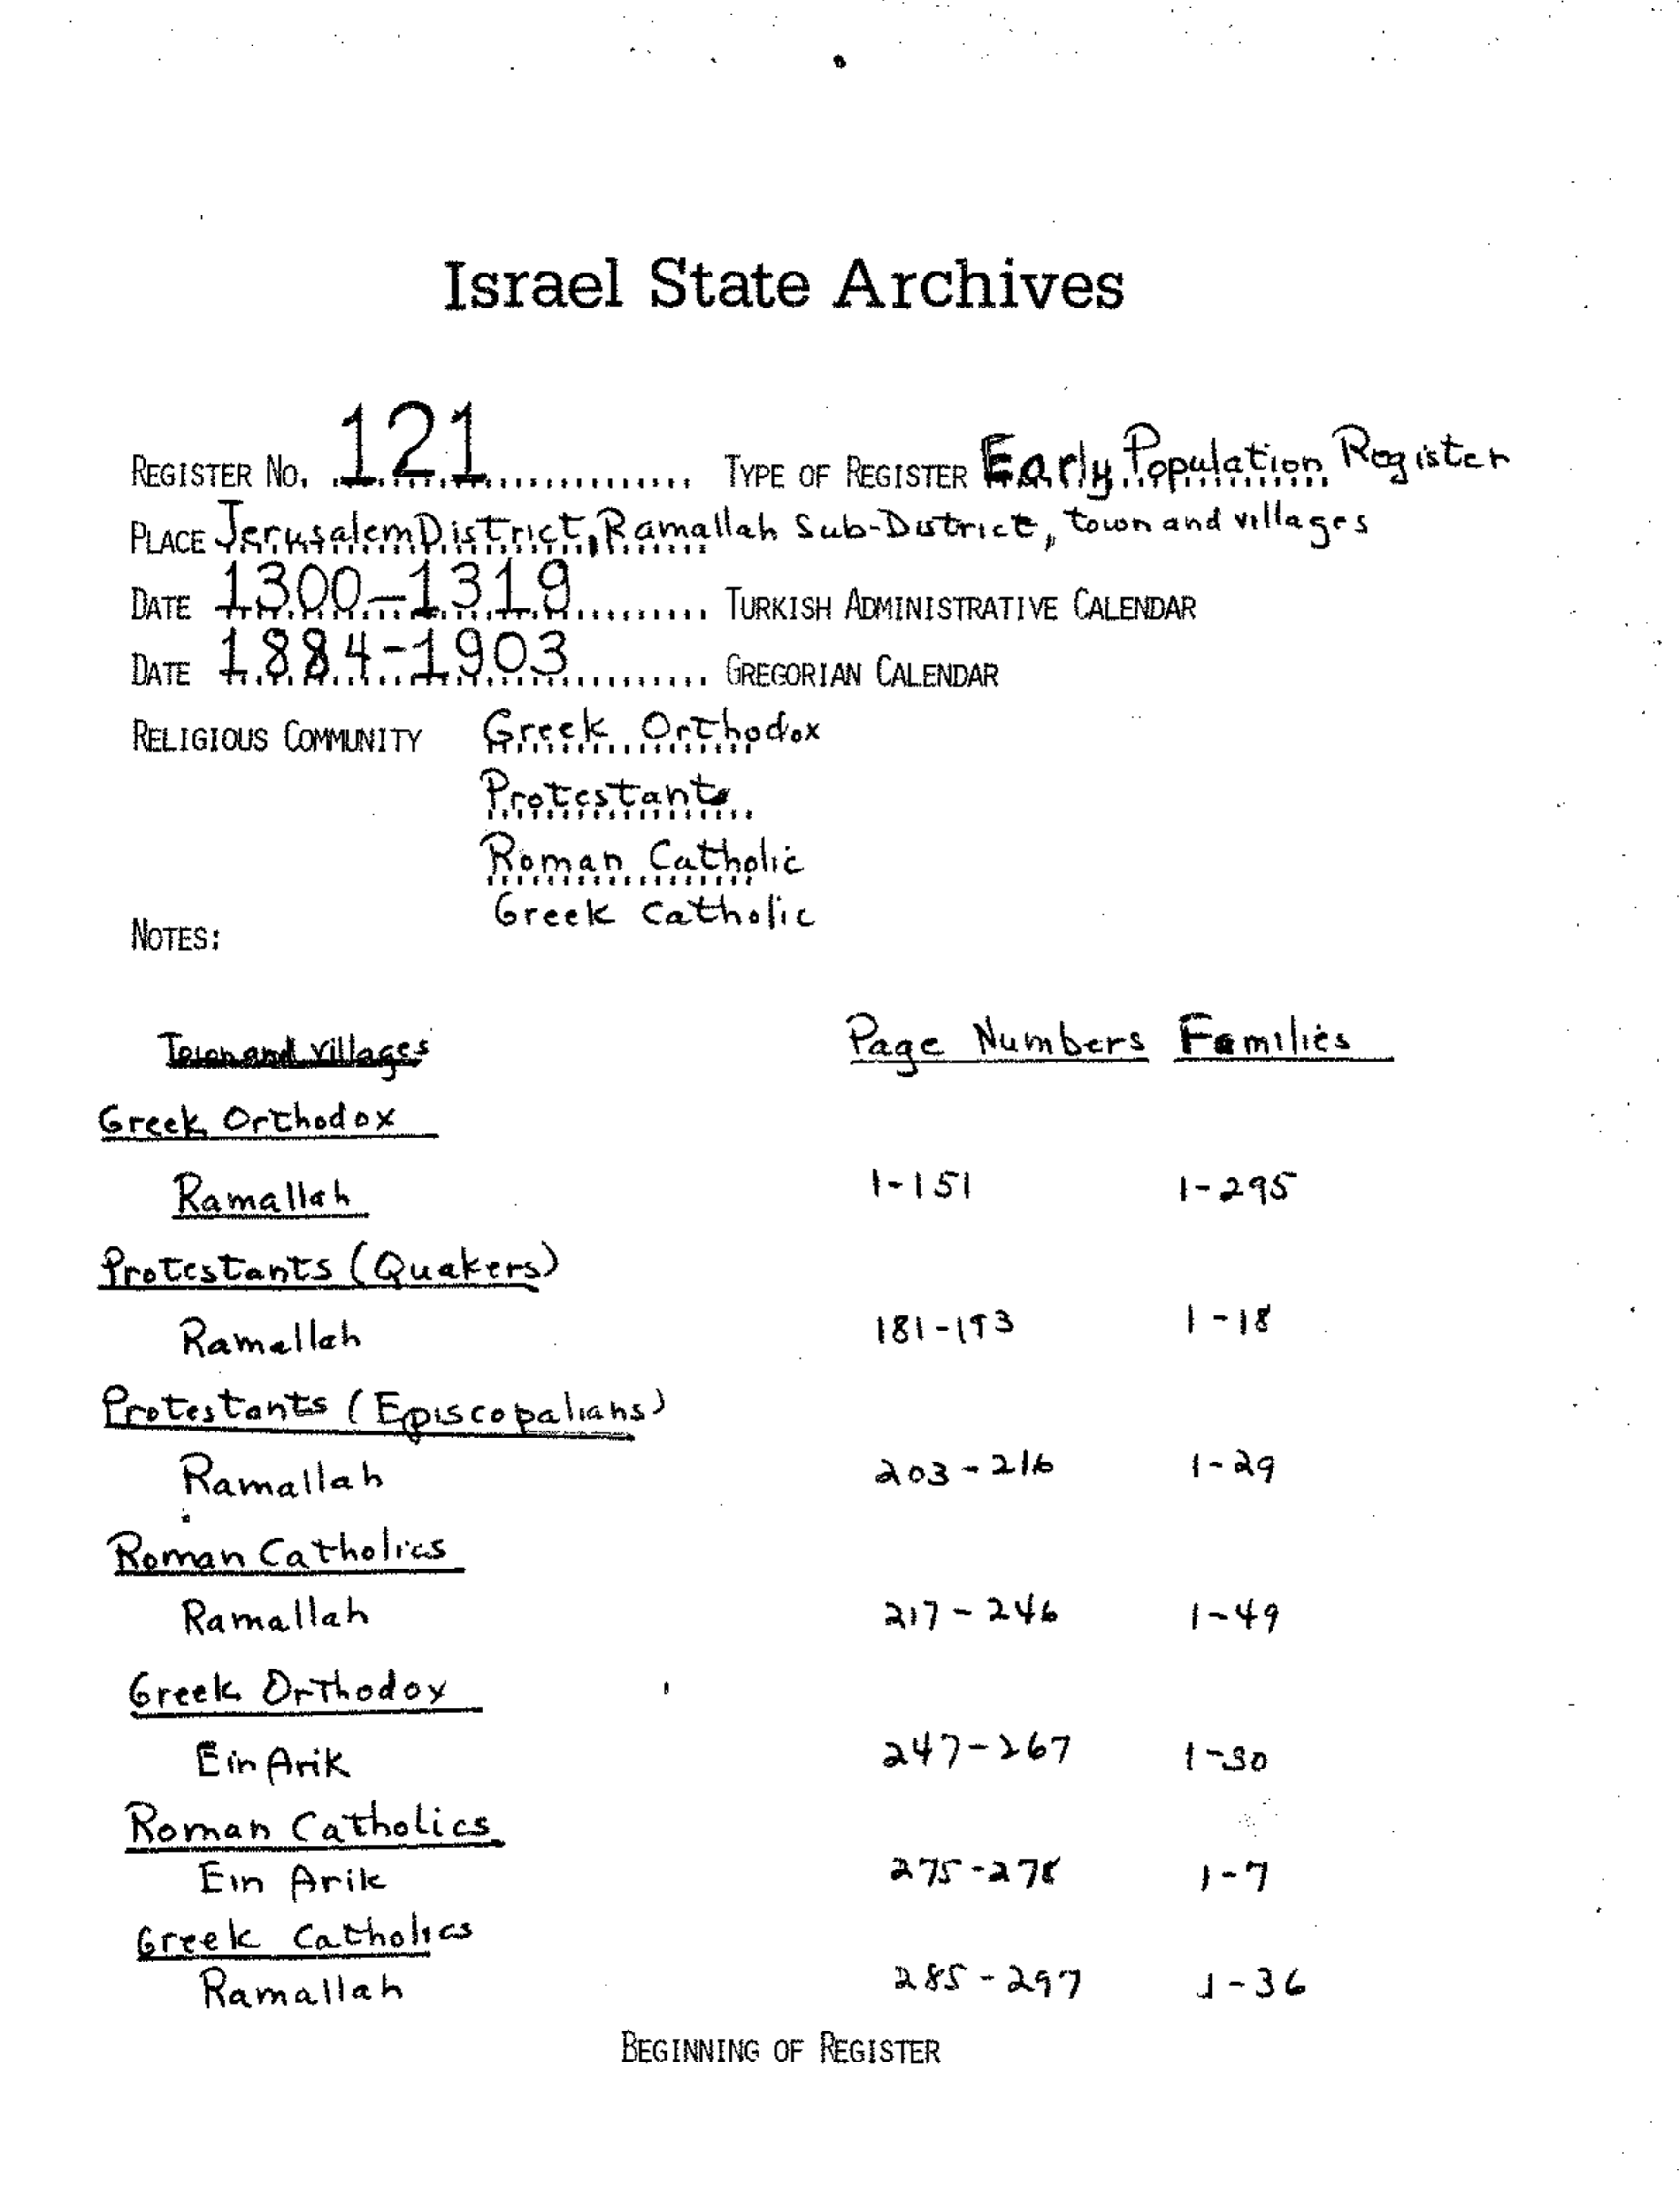 Israel State Archives
REGISTER NO. 121 TYPE OF REGISTER Early Population Register
PLACE Jerusalem District, Ramallah Sub-District, town and villages
DATE 1300-1319 TURKISH ADMINISTRATIVE CALENDAR
DATE 1884-1903 GREGORIAN CALENDAR
RELIGIOUS COMMUNITY Greek Orthodox
Protestants
Roman Catholic
Greek Catholic
NOTES:
Town and villages Page Numbers Families
Greek Orthodox
Ramallah 1-151 1-295
Protestants (Quakers)
Ramallah 181-193 1-18
Protestants (Episcopalians)
Ramallah 203-216 1-29
Roman Catholics
Ramallah 217-246 1-49
Greek Orthodox
Ein Arik 247-267 1-30
Roman Catholics
Ein Arik 275-278 1-7
Greek Catholics
Ramallah 285-297 1-36
BEGINNING OF REGISTER